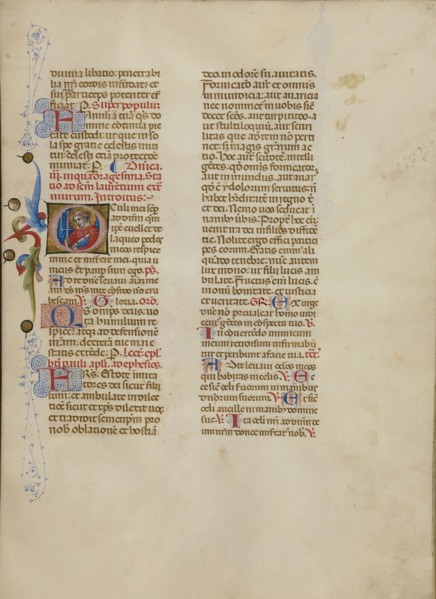 divina libatio. penetrabi
lia nri cordis infundat: et
sui participes potenter ef
ficiat. P. Super populum
Familiam tuam qs do
mine continua pie
tate custodi: ut que in so
la spe gratie celestis inni
titur celesti etiam protectione
muniat. P. Dominica
iii. in quadragesima. Sta
tio ad scm laurentium extra
murum. Introitus.
Oculi mei semp
ad dominum quia
ipse evellet de
laqueo pedes
meos respice
in me et miserere mei. quia u
nicus et pauper sum ego. ps.
Ad te domine levavi animam
meam ds meus in te confido non eru
bescam. V. Gloria. Oro.
Quesumus omps deus. vo
ta humilium re
spice: atqz ad defensionem
nram. dexteram tue ma
iestatis extende. P. Lectio eple
beati pauli apli. ad ephesios.
FRS. Estote imita
tores dei sicut filii
carissimi: et ambulate in dilec
tione sicut et xps dilexit nos:
et tradidit semetipsum pro
nobis oblationem et hostiam
deo. in odorem suavitatis.
Fornicatio autem et omnis
immundicia: aut avaricia
nec nominetur in vobis sicut
decet scos. aut turpitudo. a
ut stultiloquium. aut scurri
litas que ad rem non perti
net: sed magis gratiarum ac
tio. Hoc autem scitote. intelli
gentes. quod omnis fornicator.
aut immundus. aut avarus
quod est ydolorum servitus: non
habet hereditatem in regno xpi
et dei. Nemo vos seducat i
nanibus verbis. Propter hec enim
venit ira dei in filios diffiden
tie. Nolite ergo effici partici
pes eorum. Eratis enim ali
quando tenebre: nunc autem
lux in domino: ut filii lucis am
bulate. Fructus enim lucis. est
in omni bonitate. et iusticia
et veritate. GR. Exurge
domine non prevaleat homo iudi
centur gentes in conspectu tuo. V.
In convertendo inimicum
meum retrorsum infirmabun
tur et peribunt a facie tua. tct.
Ad te levavi oculos meos
qui habitas in celis. V. Ec
ce sicut oculi servorum in manibus
dominorum suorum. V. Et sicut
oculi ancille in manibus domine
sue. V. Ita oculi nri ad dominum de
um nrm donec misereatur nobis. V.